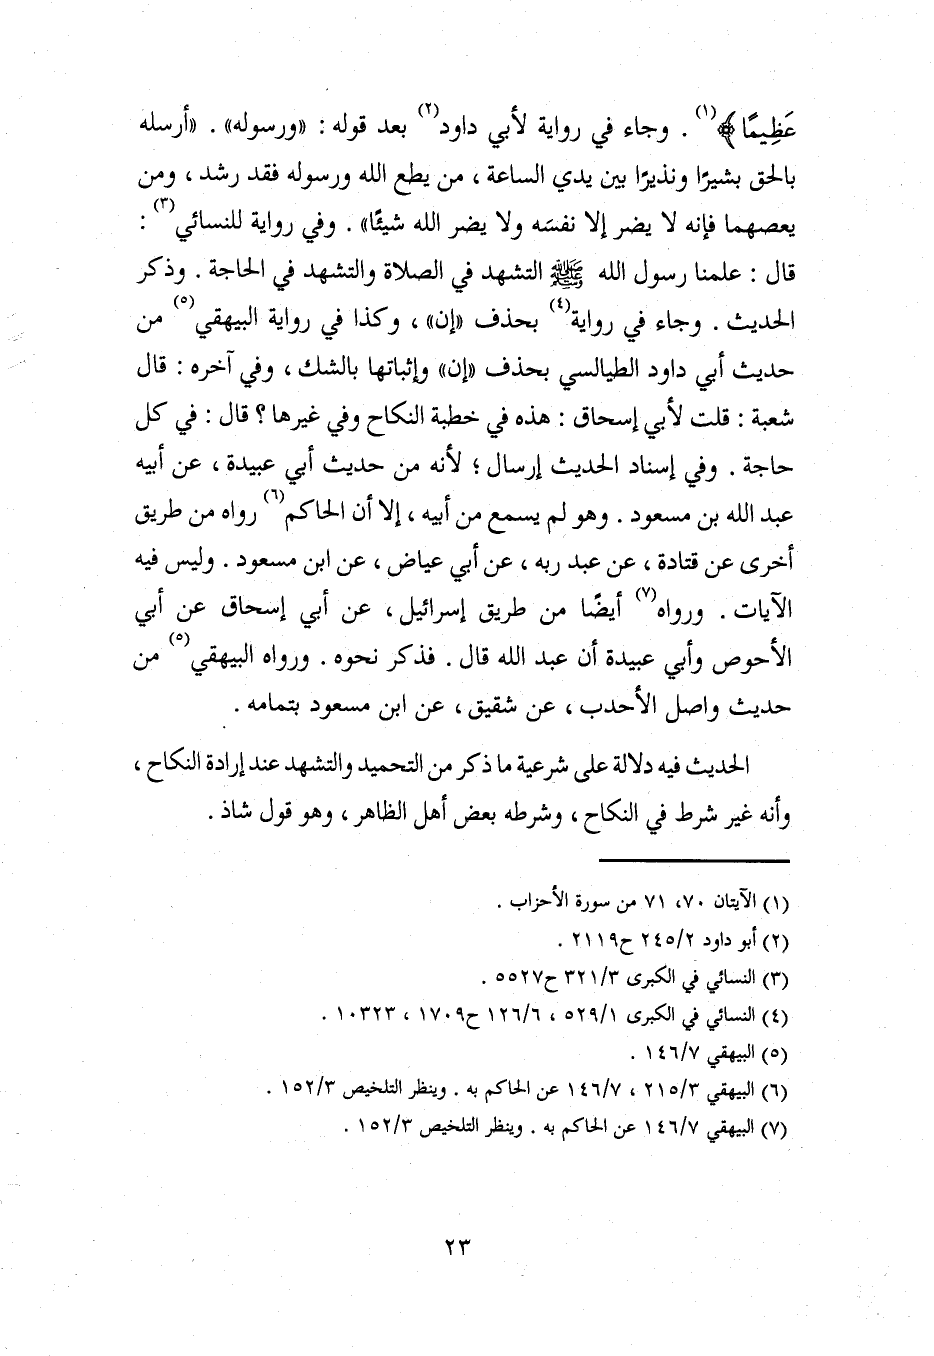 عَظِيمًا﴾(١) . وجاء في رواية لأبي داود(٢) بعد قوله : «ورسوله» . «أرسله
بالحق بشيرًا ونذيرًا بين يدي الساعة ، من يطع الله ورسوله فقد رشد ، ومن
يعصهما فإنه لا يضر إلا نفسَه ولا يضر الله شيئًا» . وفي رواية للنسائي(٣) :
قال : علمنا رسول الله ﷺ التشهد في الصلاة والتشهد في الحاجة . وذكر
الحديث . وجاء في رواية(٤) بحذف «إن» ، وكذا في رواية البيهقي(٥) من
حديث أبي داود الطيالسي بحذف «إن» وإثباتها بالشك ، وفي آخره : قال
شعبة : قلت لأبي إسحاق : هذه في خطبة النكاح وفي غيرها ؟ قال : في كل
حاجة . وفي إسناد الحديث إرسال ؛ لأنه من حديث أبي عبيدة ، عن أبيه
عبد الله بن مسعود . وهو لم يسمع من أبيه ، إلا أن الحاكم(٦) رواه من طريق
أخرى عن قتادة ، عن عبد ربه ، عن أبي عياض ، عن ابن مسعود . وليس فيه
الآيات . ورواه(٧) أيضًا من طريق إسرائيل ، عن أبي إسحاق عن أبي
الأحوص وأبي عبيدة أن عبد الله قال . فذكر نحوه . ورواه البيهقي(٥) من
حديث واصل الأحدب ، عن شقيق ، عن ابن مسعود بتمامه .
الحديث فيه دلالة على شرعية ما ذكر من التحميد والتشهد عند إرادة النكاح ،
وأنه غير شرط في النكاح ، وشرطه بعض أهل الظاهر ، وهو قول شاذ .
(١) الآيتان ٧٠، ٧١ من سورة الأحزاب .
(٢) أبو داود ٢٤٥/٢ ح٢١١٩ .
(٣) النسائي في الكبرى ٣٢١/٣ ح٥٥٢٧ .
(٤) النسائي في الكبرى ٥٢٩/١ ، ١٢٦/٦ ح١٧٠٩ ، ١٠٣٢٣ .
(٥) البيهقي ١٤٦/٧ .
(٦) البيهقي ٢١٥/٣ ، ١٤٦/٧ عن الحاكم به . وينظر التلخيص ١٥٢/٣ .
(٧) البيهقي ١٤٦/٧ عن الحاكم به . وينظر التلخيص ١٥٢/٣ .
٢٣